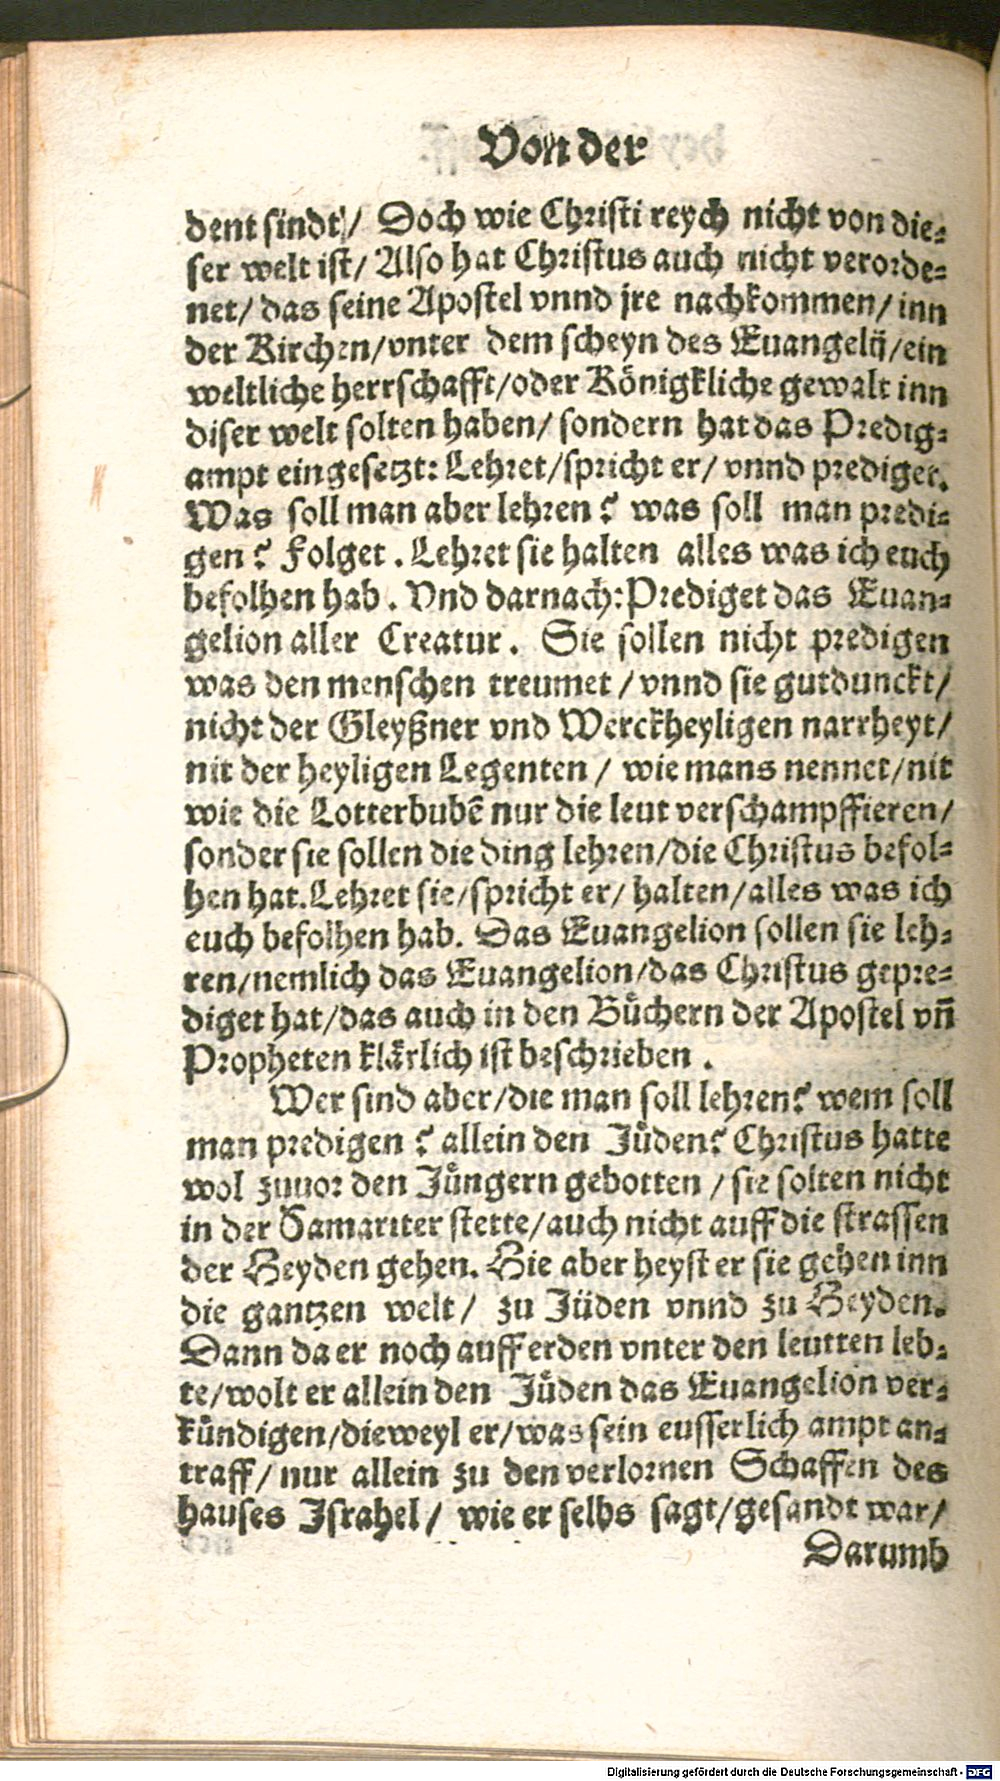 Von der
dent sindt/ Doch wie Christi reych nicht von die-
ser welt ist/ Also hat Christus auch nicht verorde-
net/ das seine Apostel vnnd jre nachkommen/ inn
der Kirchen/vnter dem scheyn des Euangelij/ein
weltliche herrschafft/oder Königkliche gewalt inn
diser welt solten haben/ sondern hat das Predig-
ampt eingesetzt: Lehret/spricht er/ vnnd prediget.
Was soll man aber lehren? was soll man predi-
gen? Folget. Lehret sie halten alles was ich euch
befolhen hab. Vnd darnach: Prediget das Euan-
gelion aller Creatur. Sie sollen nicht predigen
was den menschen treumet/ vnnd sie gutdunckt/
nicht der Gleyßner vnd Werckheyligen narrheyt/
nit der heyligen Legenten/ wie mans nennet/nit
wie die Lotterbubẽ nur die leut verschampffieren/
sonder sie sollen die ding lehren/die Christus befol-
hen hat. Lehret sie/spricht er/ halten/alles was ich
euch befolhen hab. Das Euangelion sollen sie leh-
ren/nemlich das Euangelion/das Christus gepre-
diget hat/das auch in den Bůchern der Apostel vñ
Propheten klärlich ist beschrieben.
Wer sind aber/die man soll lehren? wem soll
man predigen? allein den Jůden? Christus hatte
wol zuuor den Jůngern gebotten/ sie solten nicht
in der Samariter stette/auch nicht auff die strassen
der Heyden gehen. Hie aber heyst er sie gehen inn
die gantzen welt/ zu Jüden vnnd zu Heyden.
Dann da er noch auff erden vnter den leutten leb-
te/wolt er allein den Jůden das Euangelion ver-
kündigen/dieweyl er/was sein eusserlich ampt an-
traff/ nur allein zu den verlornen Schaffen des
hauses Israhel/ wie er selbs sagt/gesandt war/
Darumb
Digitalisierung gefördert durch die Deutsche Forschungsgemeinschaft - DFG